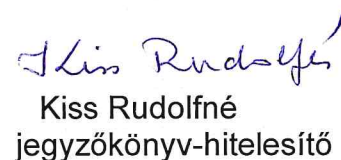 Kiss Rudolfné
Kiss Rudolfné
jegyzőkönyv-hitelesítő